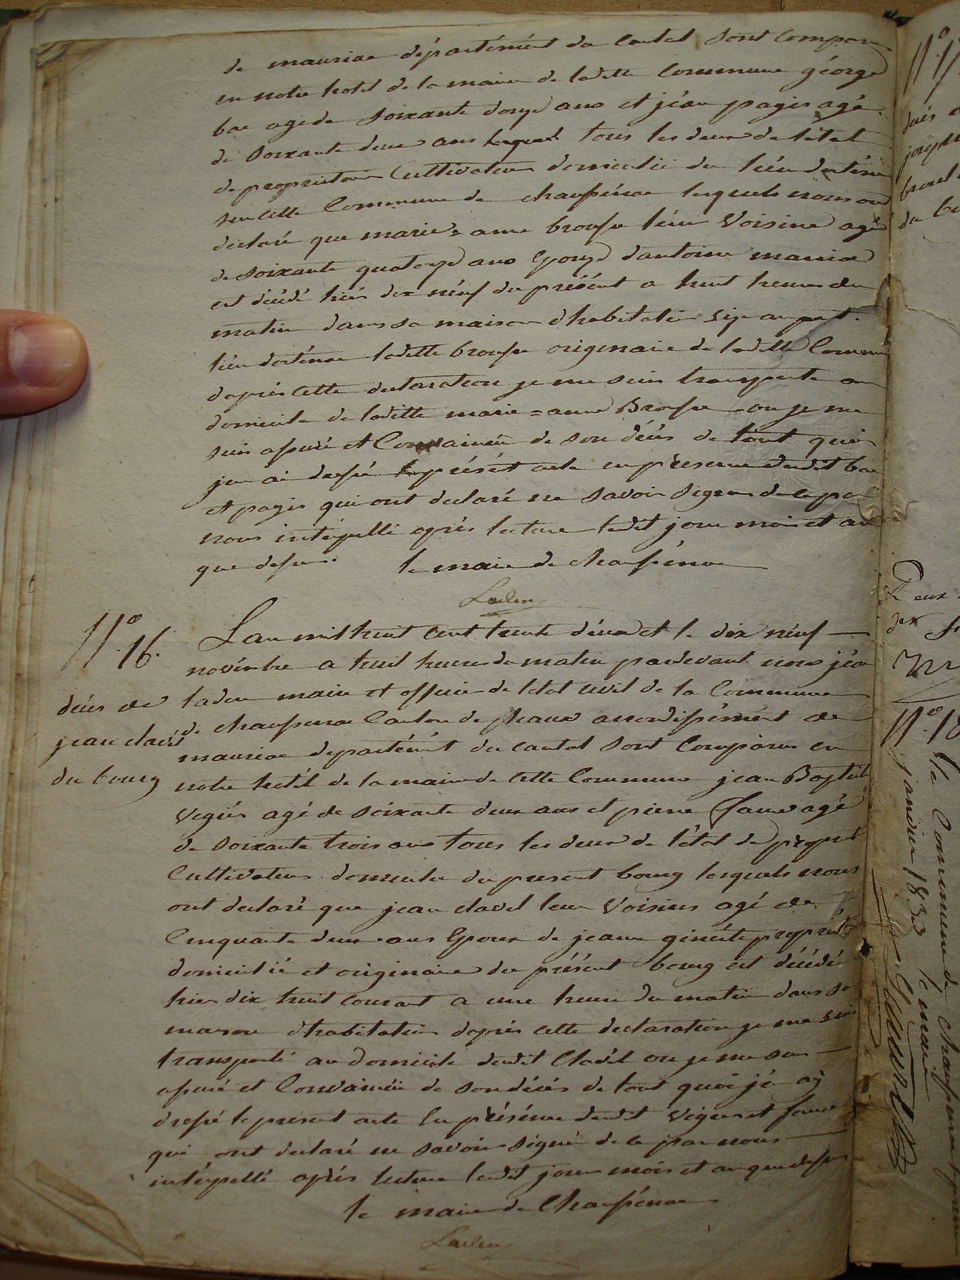 de mauriac département du cantal sont comparu
en notre hotel de la mairie de ladette commune géorge
bac agé de soixante douze ans et jéan pagés agé
de soixante deux ans tous les deux de l'état
de proprietaire Cultivateur domicilié du lieu
sur cette Commune de chaussénac lesquels nous ont
declaré que marie = anne brousse leur Voisine agé
de soixante quatorze ans Epouze d'antoine
est décédé hier dix neuf du présént a huit heures du
matin dans sa maison d'habitation size au
lieu ladette brousse originaire de ladette Commune
daprés cette declaration je me suis transporté au
domicile de ladette marie = anne Brousse ou je me
suis assuré et Convaincu de son décés de tout quoi
j'en ai dressé le prését acte en présence dudit bac
et pagés qui ont declaré ne savoir signer de ce par
nous intérpellé aprés lecture ledit jour mois et an
que dessus. le maire de chaussénac
Laden
N.° 16.
décés de
jean clavel
du bourg
L'an mil huit cent trente deux et le dix neuf
novémbre a huit heures du matin pardevant nous jéan
laden maire et officier de l'état civil de la Commune
de chaussenac Canton de pleaux arrondissément de
mauriac departémént du cantal sont Comparus en
notre hotél de la mairie de cette Commune jean Baptiste
Vigiés agé de soixante deux ans et pierre faure agé
de soixante trois ans tous les deux de l'état de propriét
Cultivateurs domicilié du present bourg lesquels nous
ont declaré que jean clavel leur Voisins agé de
Cinquante deux ans Epoux de jeanne propriét
domicilié et originaire du présént bourg est décédé
hier dix huit courant a une heure du matin dans sa
maison d'habitation daprés cette declaration je me suis
transporté au domicile dudit Clavél ou je me suis
assuré et Convaincu de son décés de tout quoi j'én ai
dressé le present acte En présénce dudit Vigier et faure
qui ont declaré ne savoir signer de ce par nous
intérpellé aprés lecture ledit jour mois et an que dessus
le maire de Chaussénac
Laden